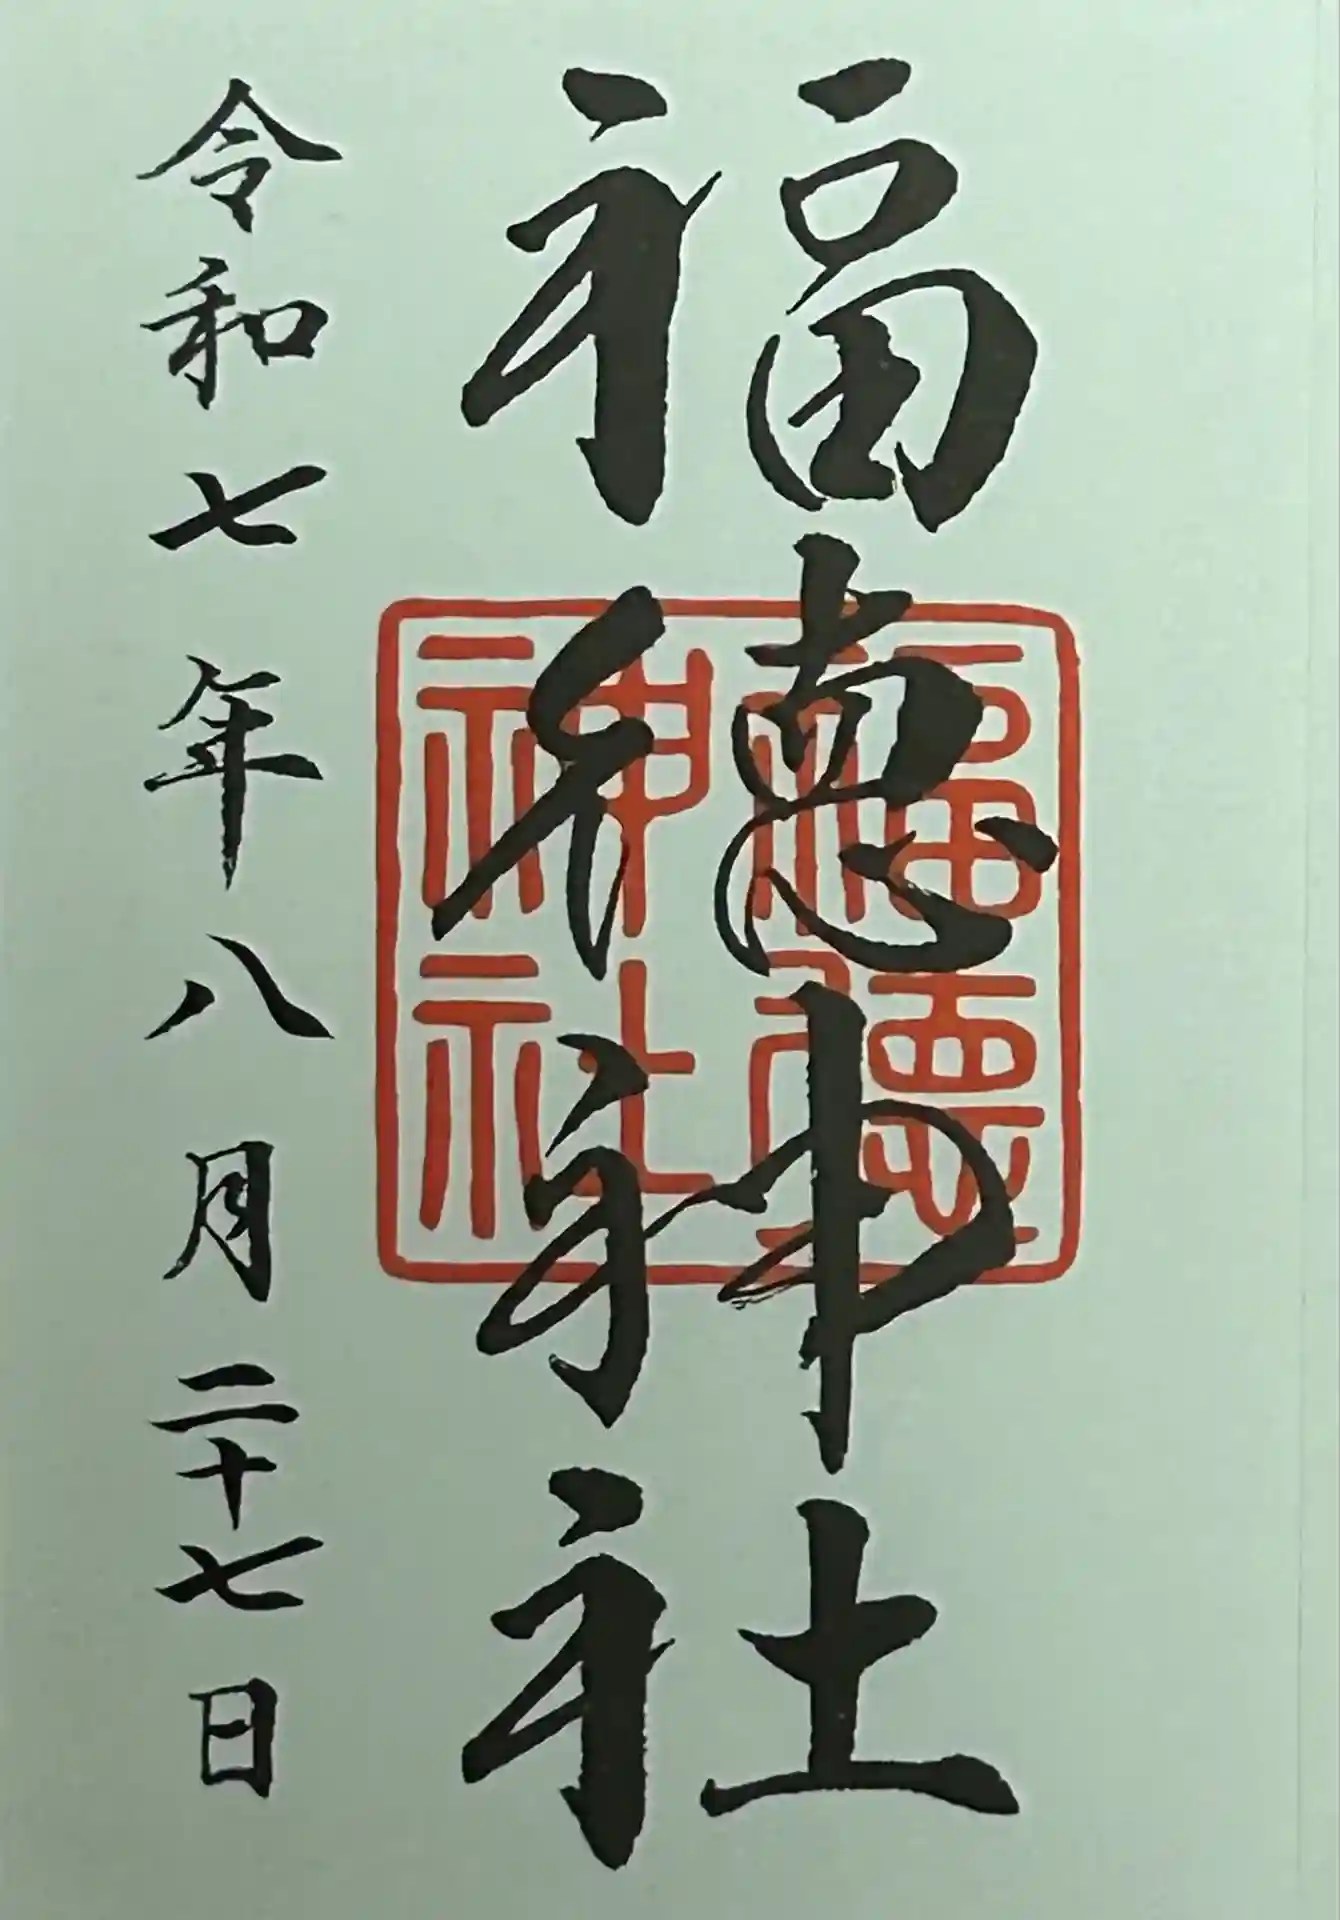 福徳神社
福徳神社
令和七年八月二十七日